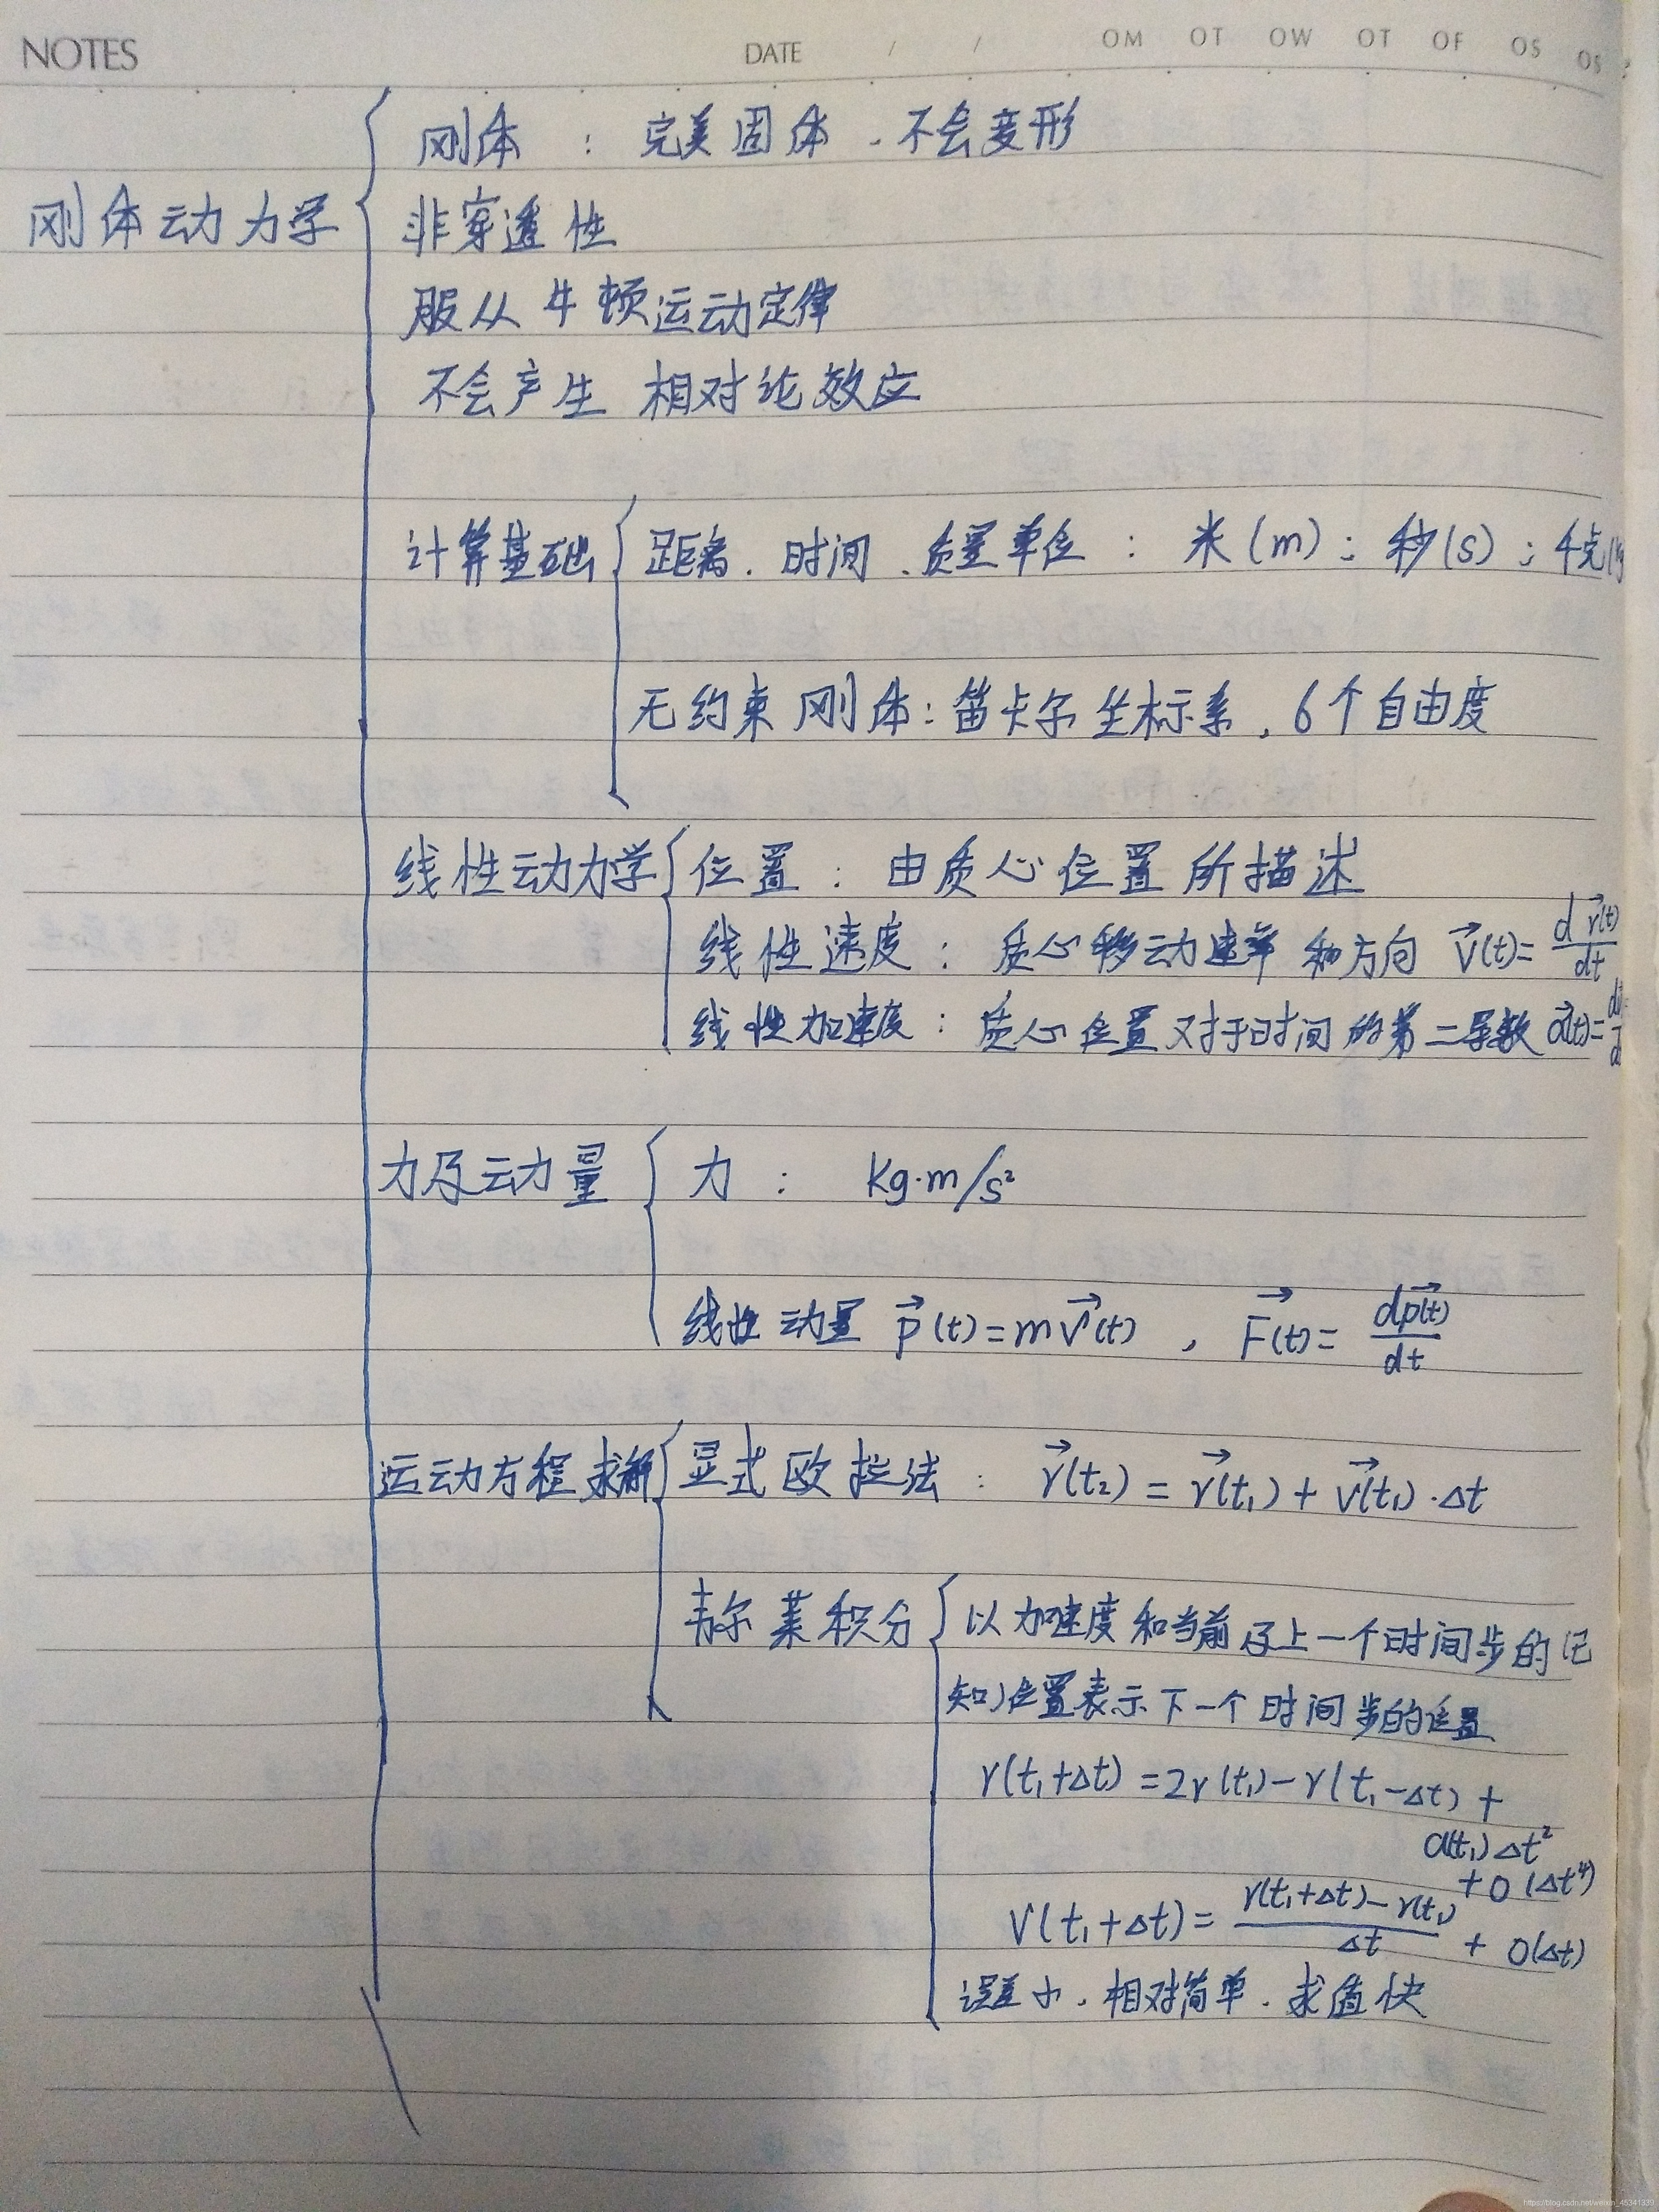 NOTES DATE / / OM OT OW OT OF OS OS
刚体 : 完美固体、不会变形
刚体动力学 非穿透性
服从牛顿运动定律
不会产生 相对论效应
计算基础 距离、时间、质量单位 : 米(m); 秒(s); 千克
无约束刚体: 笛卡尔坐标系, 6个自由度
线性动力学 位置 : 由质心位置所描述
线性速度 : 质心移动速率和方向 \vec{v}(t)=\frac{d\vec{r}(t)}{dt}
线性加速度 : 质心位置对于时间的第二导数 \vec{a}(t)=
力及动力量 力 : Kg·m/s²
线性动量 \vec{p}(t)=m\vec{v}(t) , \vec{F}(t)=\frac{d\vec{p}(t)}{dt}
运动方程求解 显式欧拉法 : \vec{r}(t₂)=\vec{r}(t₁)+\vec{v}(t₁)·Δt
韦尔莱积分 以加速度和当前及上一个时间步的(已
知)位置表示下一个时间步的位置
r(t₁+Δt)=2r(t₁)-r(t₁-Δt)+
a(t₁)Δt²
+O(Δt⁴)
v(t₁+Δt)=\frac{r(t₁+Δt)-r(t₁)}{Δt}+O(Δt)
误差小、相对简单、求值快
https://blog.csdn.net/weixin_45341339